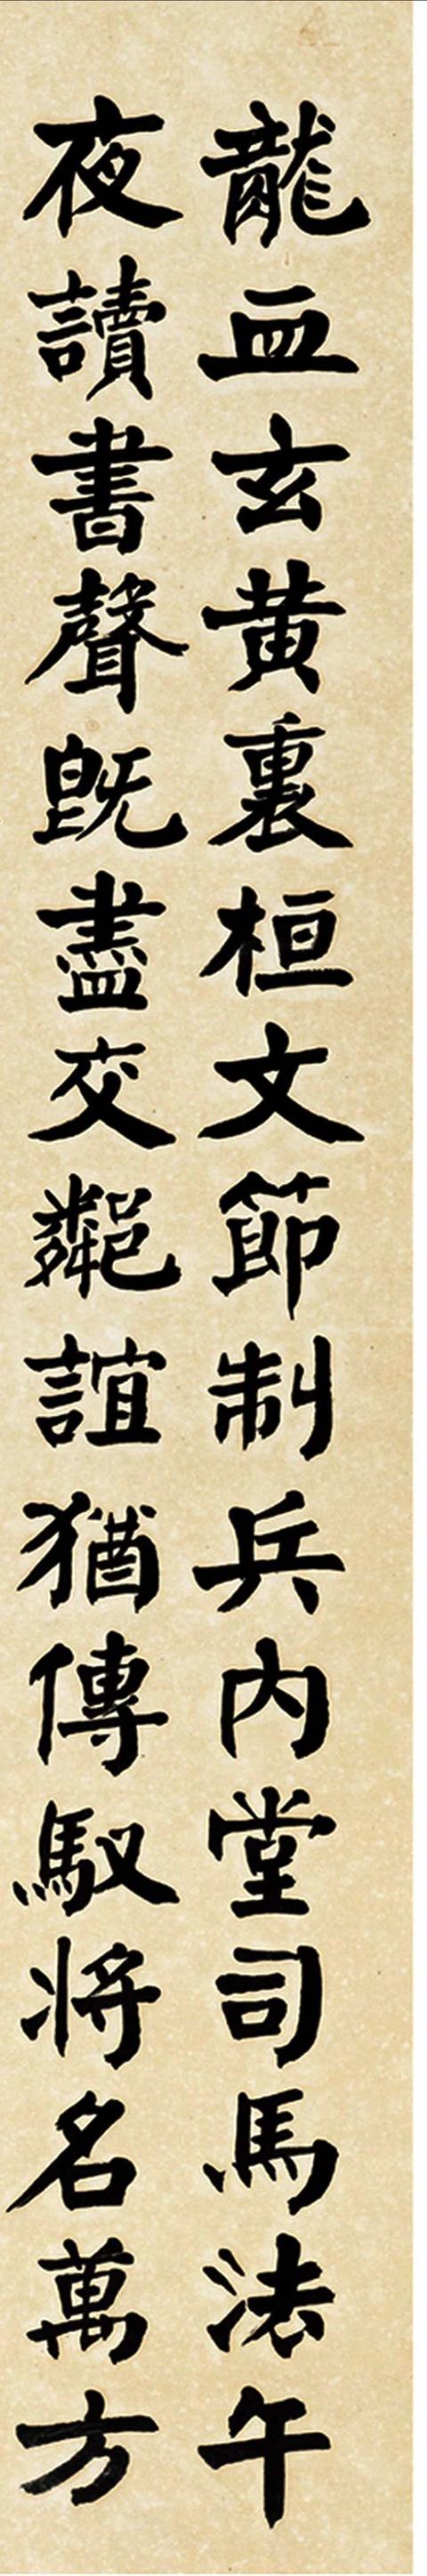 龍血玄黄裏桓文節制兵内堂司馬法午
夜讀書聲既盡交鄰誼猶傳馭将名萬方